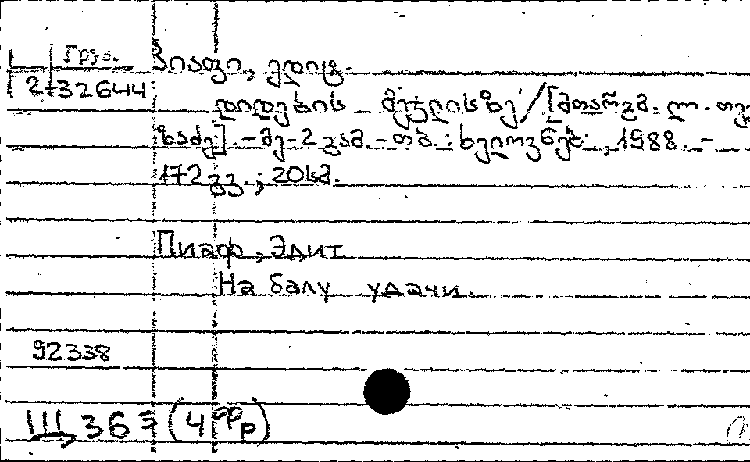 Груз.
2-32644
პიაფი, ედიტ.
დიდების მეჯლისზე / [მთარგმ. ლ. თა
ზაძე]. - მე-2 გამ. - თბ. : ხელოვნებ., 1988. -
172 გვ. ; 20სმ.
Пиаф, Эдит
На балу удачи.
92338
Ш 36